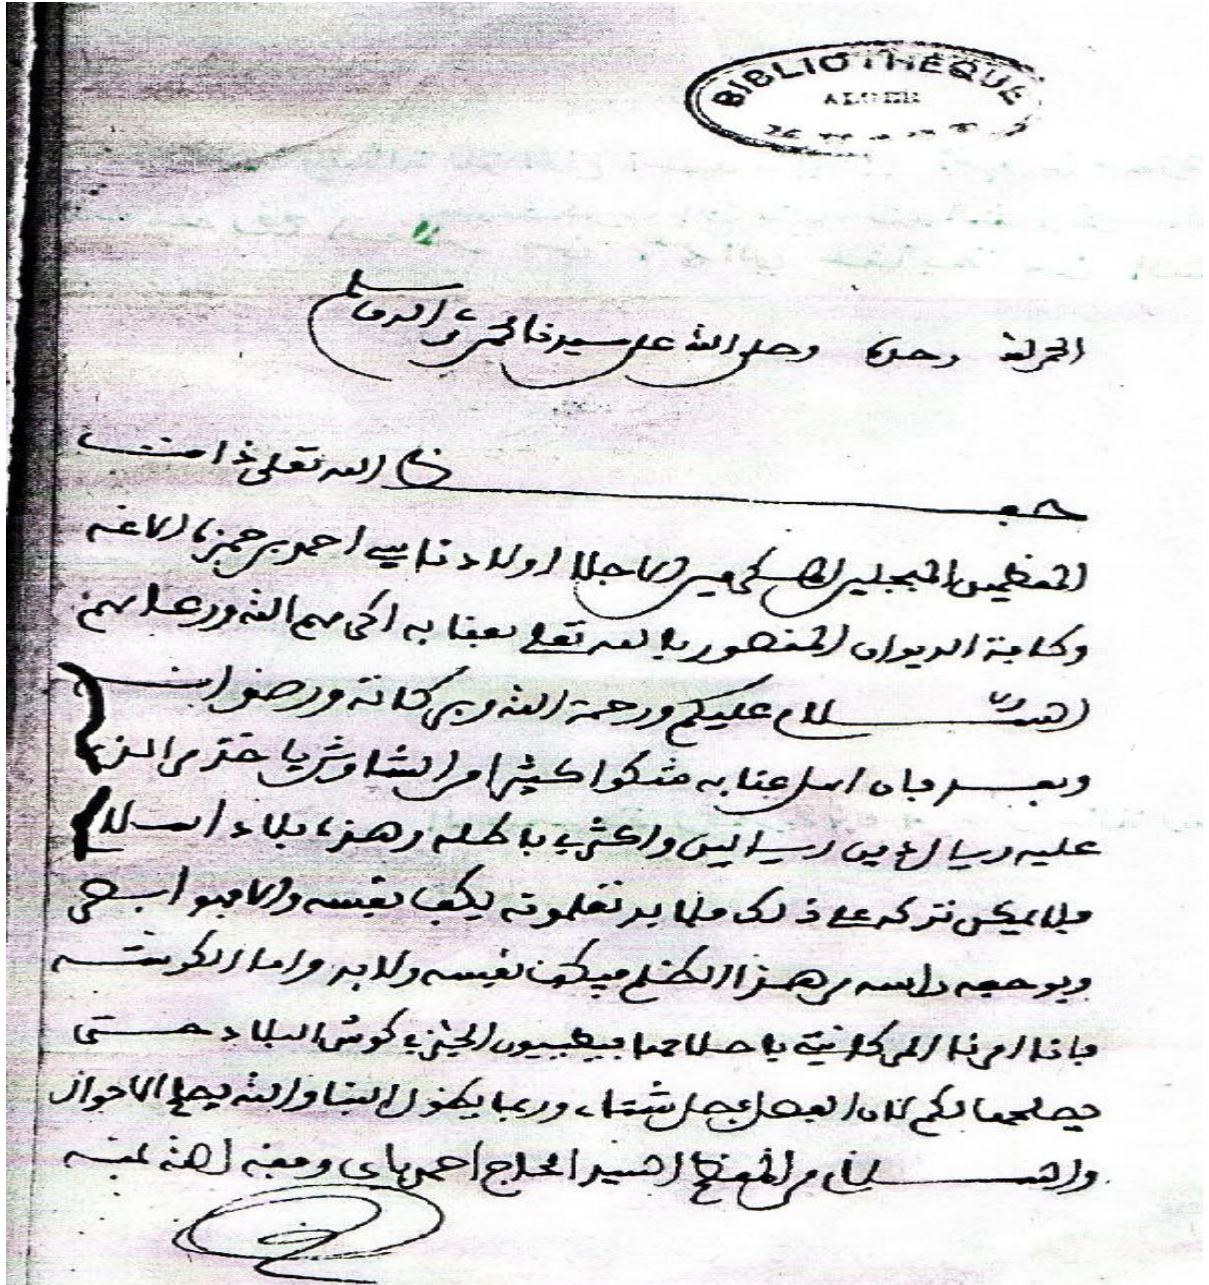 BIBLIOTHEQUE
ALGER
الحمد لله وحده وصلى الله على سيدنا محمد وآله وسلم
حفظ الله تعلى ذات
المعظمين المبجلين اولادنا احمد بن حمزة الاغه
وكافة الديوان المنصور بالله تعلى بعنابه اكرمهم الله ورعاهم
السلام عليكم ورحمة الله وبركاته ورضوانه
وبعد فان اهل عنابه شكوا كثيرا من الشاوش ياخذ من الذي
عليه ريال زوج ريالين واكثر باطله وهذه بلاد السلا
فلا يمكن نتركه على ذلك فلابد تعلموته يكف نفسه والا فهو ابحى
ويوجعه راسه من هذا الظلم فيكف نفسه ولابد واما الكوشه
فاننا امرنا المركانتيه باصلاحها فيطيبون الخبز في كوش البلاد حتى
نصلحها لكم لان الفصل فصل شتا، وربما يطول البنا والله يصلح الاحوال
والسلام من المعظم السيد الحاج احمد باي وفقه الله بمنه